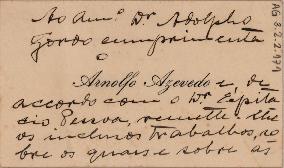 Ao Am.º Dr Adolpho
Gordo cumprimenta
o
Arnolfo Azevedo e de
accordo com o Dr. Epita
cio Pessoa, remette-lhe
os inclusos trabalhos, so
bre os quaes e sobre as
AG 8.2.2.974